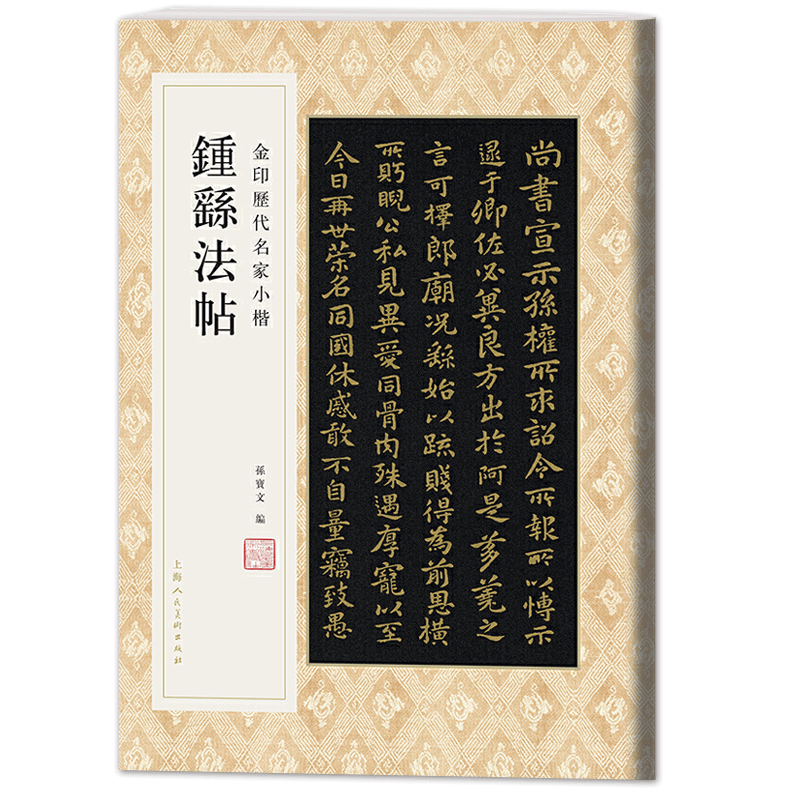 鍾繇法帖
金印歷代名家小楷
孫寶文 編
上海人民美術出版社
尚書宣示孫權所求詔令所報所以博示
逮于卿佐必冀良方出於阿是芻蕘之
言可擇郎廟況繇始以疏賤得為前恩橫
所盻睨公私見異愛同骨肉殊遇厚寵以至
今日再世榮名同國休慼敢不自量竊致愚